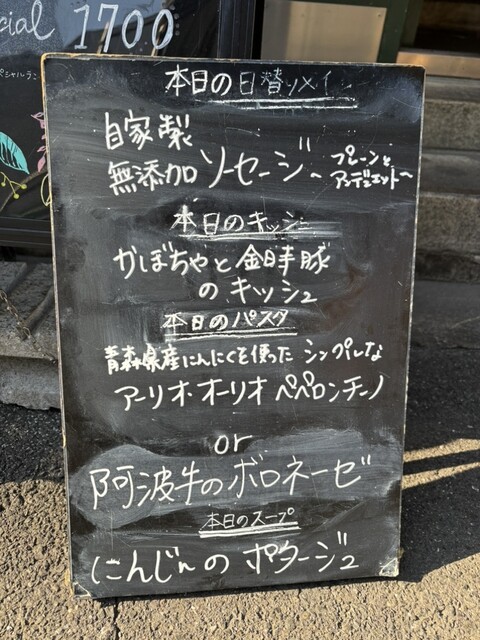 cial 1700
ペシャルランチ
本日の日替ﾒｲﾝ
自家製
無添加ソーセージ〜プレーンと
アンデュエット〜
本日のキッシュ
かぼちゃと金時豚
のキッシュ
本日のパスタ
青森県産にんにくを使った シンプルな
アーリオ・オーリオ ペペロンチーノ
or
阿波牛のボロネーゼ
本日のスープ
にんじんの ポタージュ